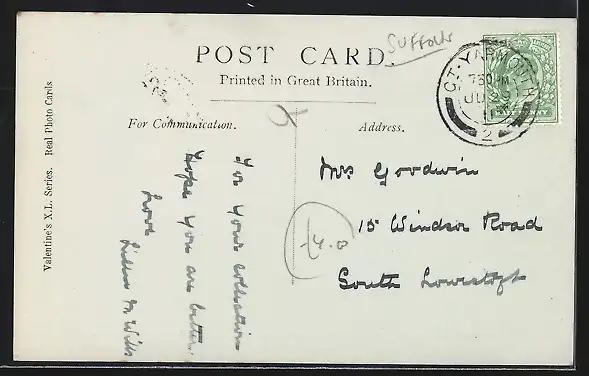 POST CARD.
SUFFOLK
Printed in Great Britain.
For Communication.
Address.
GT. YARMOUTH
7 30 PM
JU
2
Valentine's X.L. Series. Real Photo Cards
For your collection
hope you are better.
Love
Mrs Goodwin
15 Windsor Road
South Lowestoft